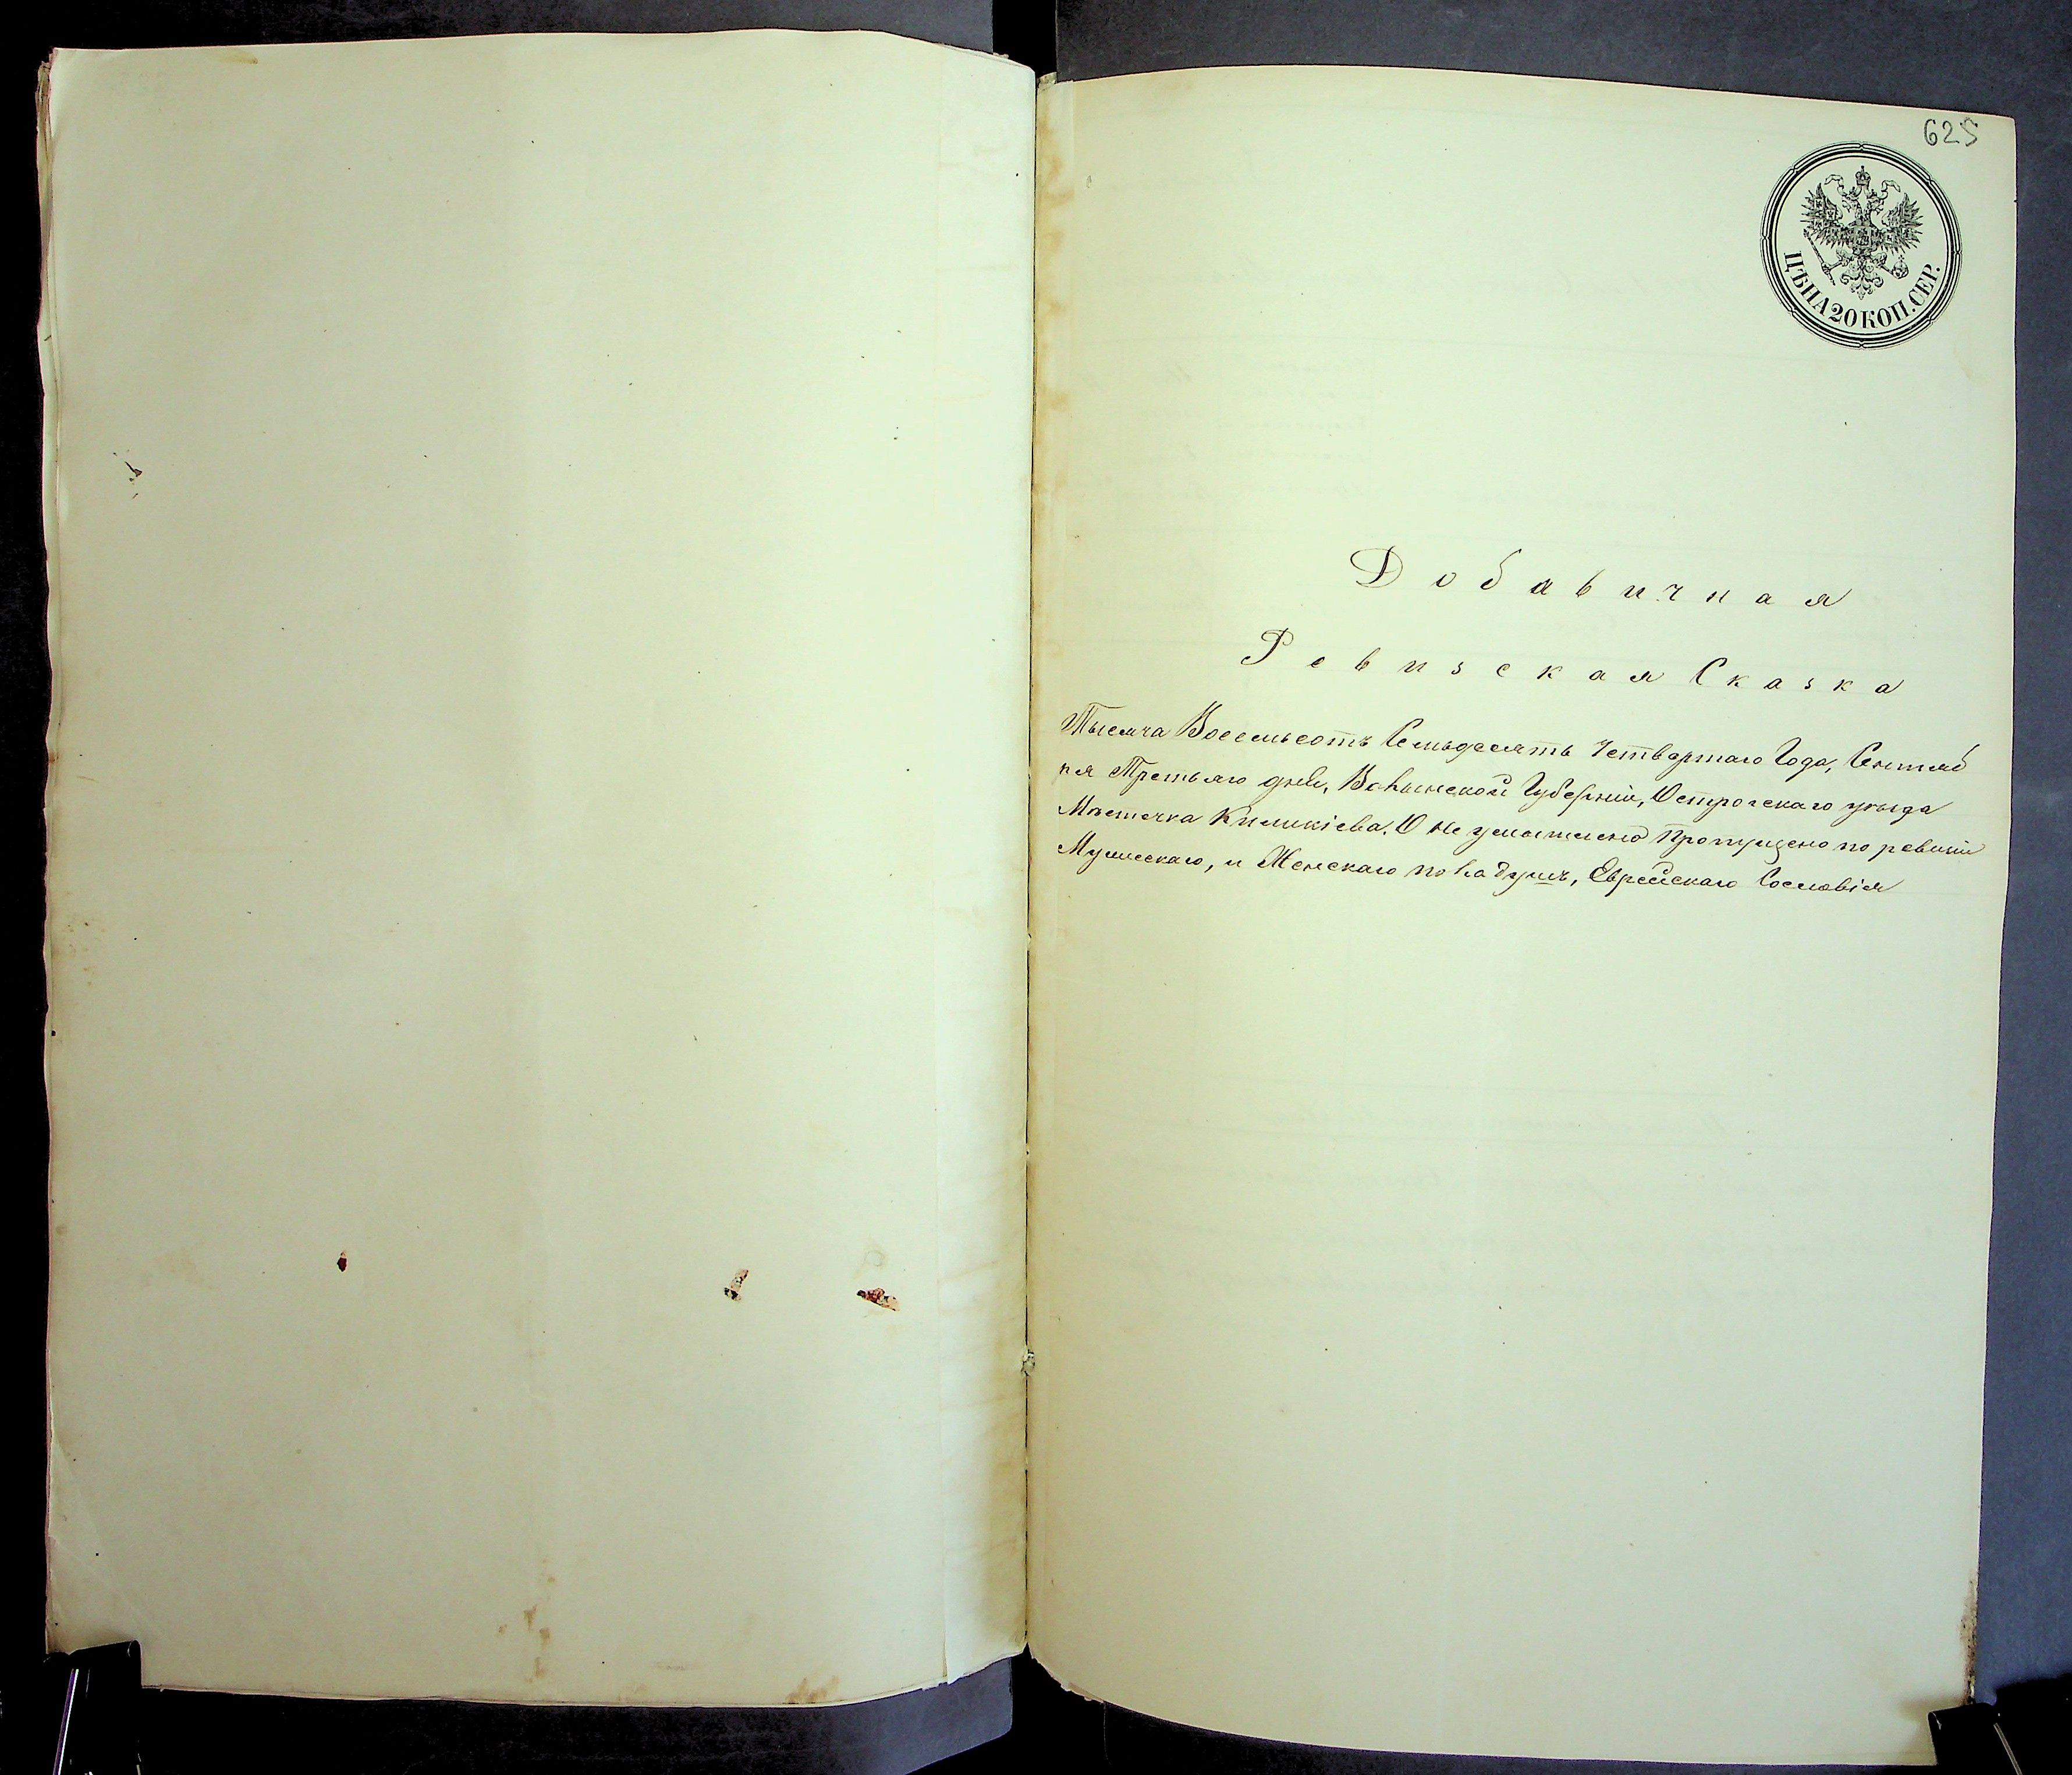 625
ЦѢНА 20 КОП. СЕР.
Добавичная
Ревизская Сказка
Тысяча Восемьсотъ Семьдесятъ Четвертаго Года, Сентяб
ря Третьяго дня, Волынской Губерніи, Острогскаго уѣзда
Мѣстечка Киликіева. О не умышлено пропущено по ревизіи
Мужескаго, и Женскаго пола душъ, Еврейскаго Сословія